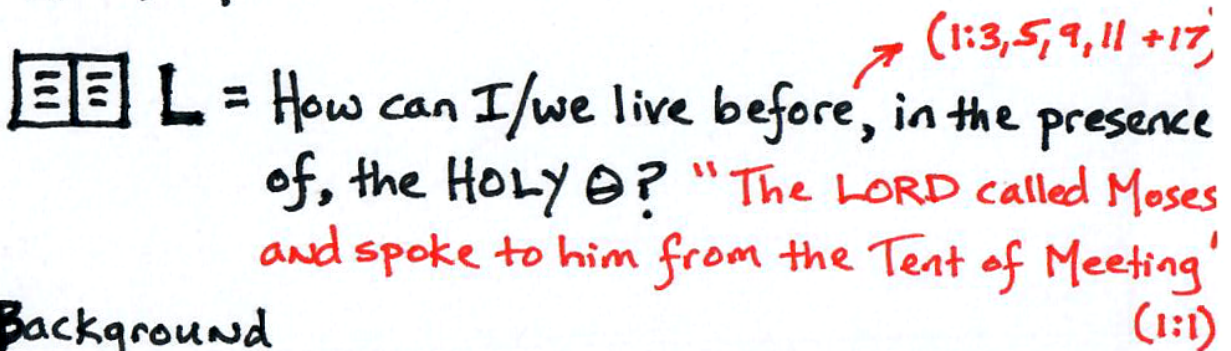 (1:3,5,9,11 +17)
L = How can I/we live before, in the presence
of, the HOLY Θ? "The LORD called Moses
and spoke to him from the Tent of Meeting"
(1:1)
Background